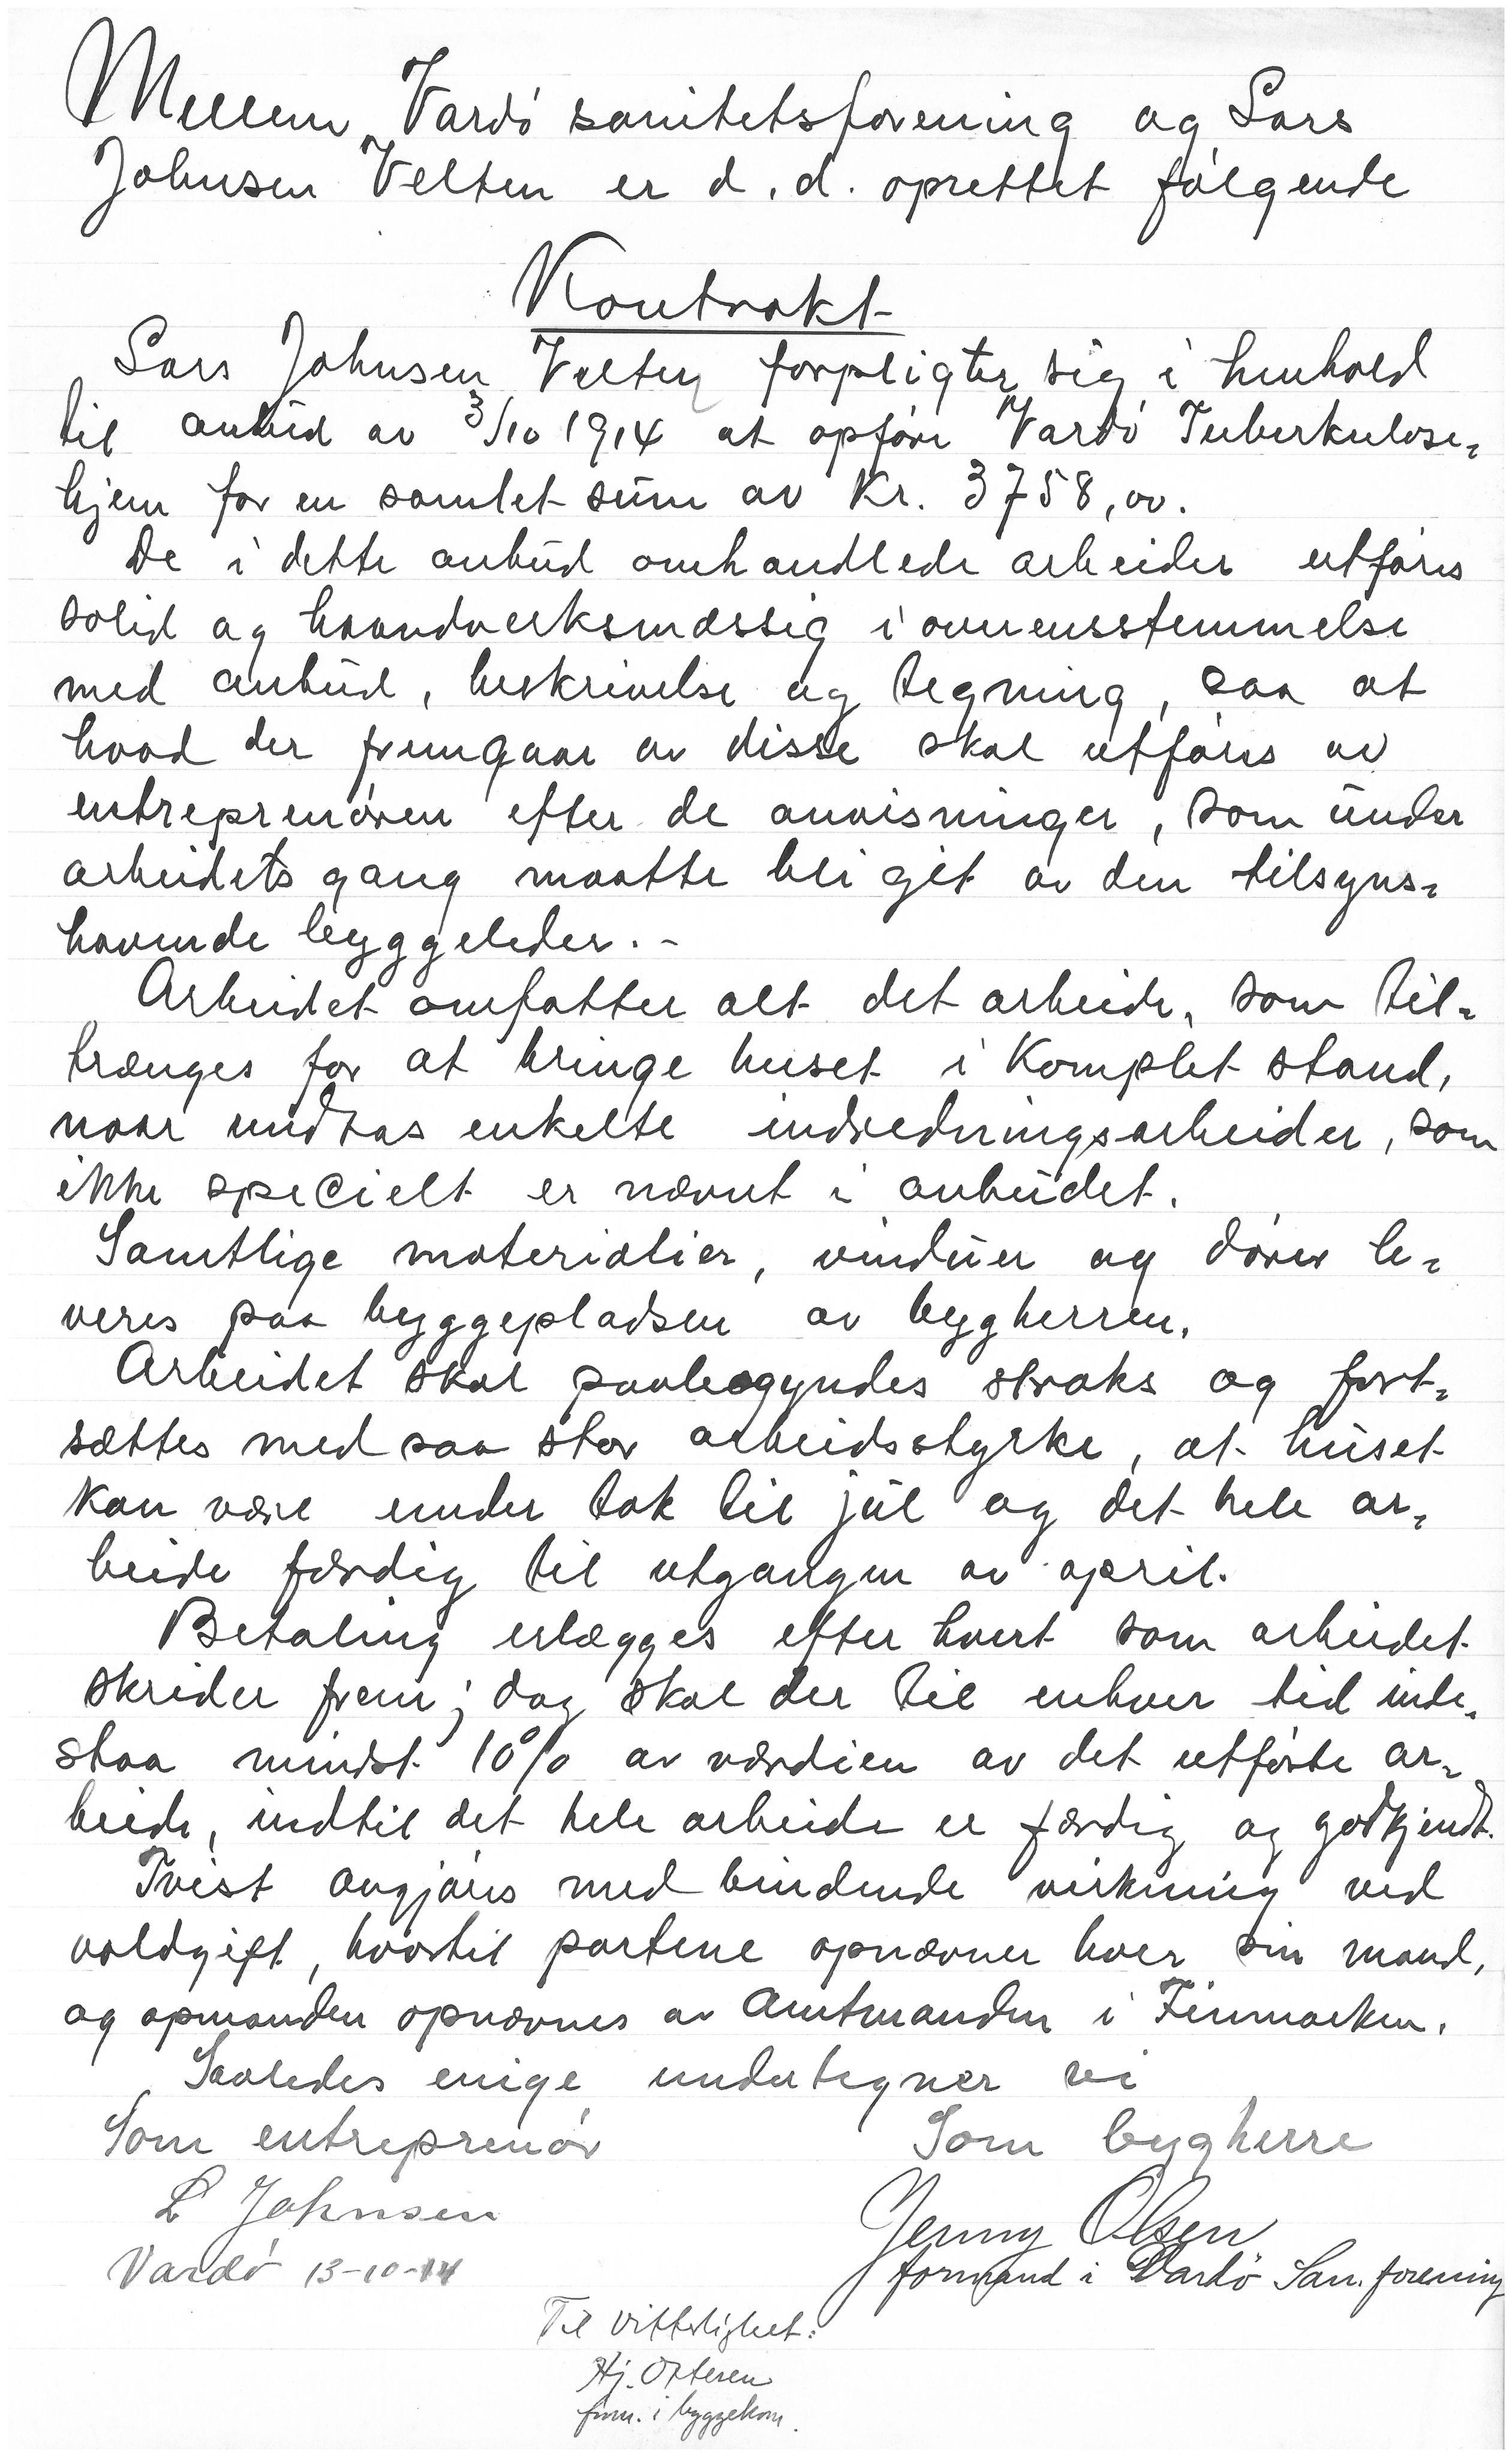 Mellem Vardö sanitetsforening og Lars
Johnsen Velten er d.d. oprettet fölgende
Kontrakt
Lars Johnsen Velten forpligter sig i henhold
til anbud av 3/10 1914 at opföre Vardö Tuberkulose-
hjem for en samlet sum av Kr. 3758,00.
De i dette anbud omhandlede arbeider utföres
solid og haandverksmæssig i overensstemmelse
med anbud, beskrivelse og tegning, saa at
hvad der fremgaar av disse skal utföres av
entreprenören efter de anvisninger, som under
arbeidets gang maatte bli git av den tilsyns-
havende byggeleder.-
Arbeidet omfatter alt det arbeide, som til-
trænges for at bringe huset i Komplet stand,
naar undtas enkelte indredningsarbeider, som
ikke specielt er nævnt i anbudet.
Samtlige materialier, vinduer og dörer le-
veres paa byggepladsen av bygherren.
Arbeidet skal paabegyndes straks og fort-
sættes med saa stor arbeidsstyrke, at huset
kan være under tak til jul og det hele ar-
beide færdig til utgangen av april.
Betaling erlægges efter hvert som arbeidet
skrider frem; dog skal der til enhver tid inde-
staa mindst 10% av værdien av det utförte ar-
beide, indtil det hele arbeide er færdig og godkjendt.
Tvist avgjöres med bindende virkning ved
voldgift, hvortil partene opnævner hver sin mand,
og opmanden opnævnes av Amtmanden i Finmarken.
Saaledes enige undertegner vi
Som entreprenör
Som bygherre
L Johnsen
Jenny Olsen
Vardö 13-10-14
formand i Vardö San. forening
Til vitterlighet:
Hj. Ottesen
form. i byggekom.